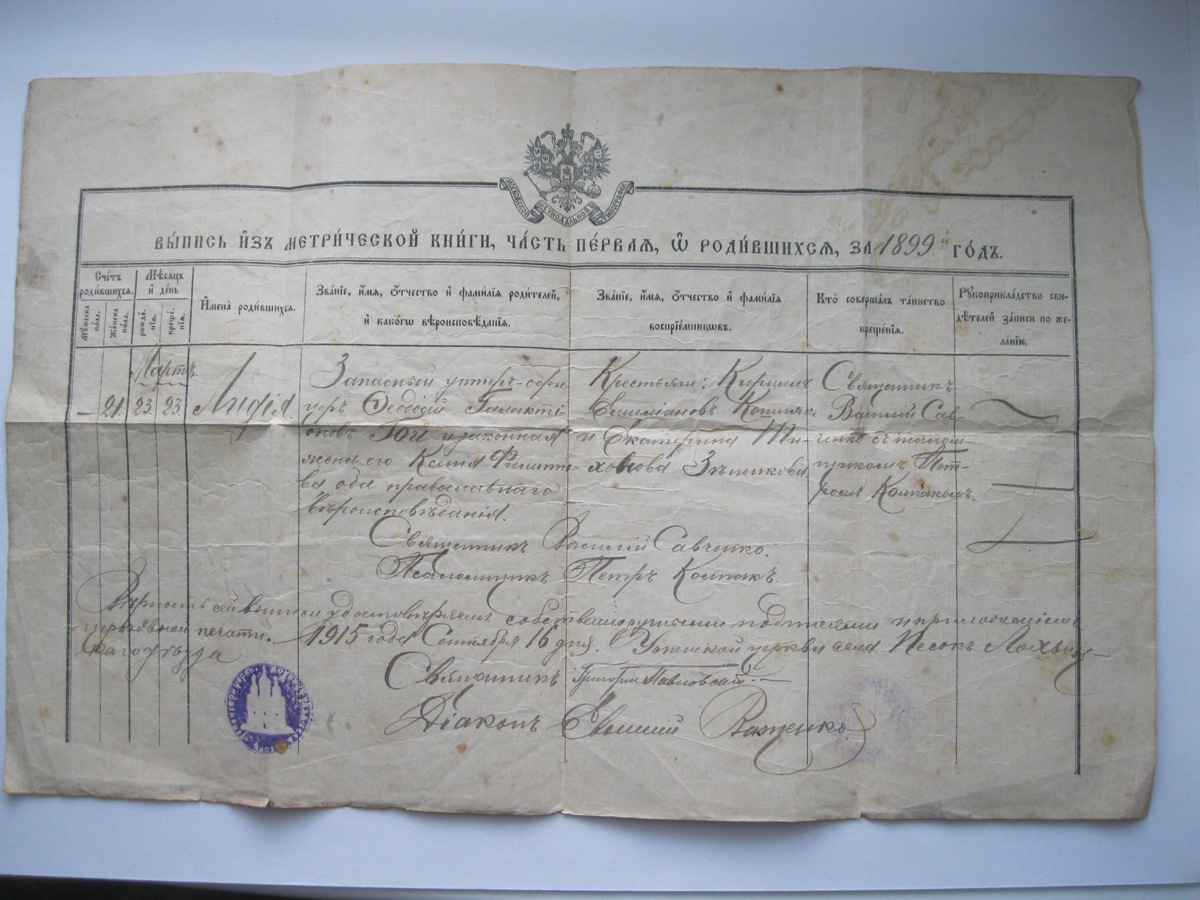 МОСКОВСКОЙ СѴНОДАЛЬНОЙ ТИПОГРАФІИ
ВЫ́ПИСЬ И҆ЗЪ МЕТРИ́ЧЕСКОЙ КНИ́ГИ, ЧА́СТЬ ПЕ́РВАЯ, Ѡ҆ РОДИ́ВШИХСЯ, ЗА 1899й ГО́ДЪ.
Сче́тъ роди́вшихся.
Мѣ́сяцъ и҆ де́нь
Мꙋ́жеска по́ла.
Же́нска по́ла.
рожде́нїя.
креще́нїя.
И҆мена̀ роди́вшихся.
Зва́нїе, и҆́мя, ѻ҆́тчество и҆ фами́лїя роди́телей,
и҆ како́гѡ вѣроисповѣ́данїя.
Зва́нїе, и҆́мя, ѻ҆́тчество и҆ фами́лїя
воспрїе́мникѡвъ.
Кто̀ соверша́лъ та́инство
креще́нїя.
Рꙋкоприкла́дство сви-
дѣ́телей за́писи по же-
ла́нїю.
Мартъ
— 21. 23. 23.
Лидія.
Запасный унтеръ-офи-
церъ Ѳеодосій Галакті-
оновъ и законная
жена его Ксенія Филиппо-
ва оба православнаго
вѣроисповѣданія.
Крестьяне: Кириллъ
и Екатерина Ти-
хонова Зѣненкова
Священникъ
Василій Сав-
ченко съ псалом-
щикомъ Пет-
ромъ Колпакомъ.
Священникъ Василій Савченко.
Псаломщикъ Петръ Колпакъ.
Вѣрность сей выписи удостовѣряемъ собственноручными подписями и приложеніемъ
церковной печати. 1915 года Сентября 16 дня. Успенской церкви села Песокъ Лохвиц-
каго уѣзда
Священникъ Григорій Павловскій
Діаконъ Евѳимій